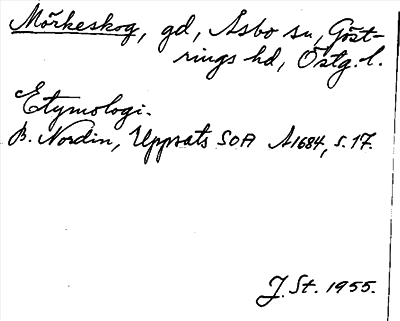 Mörkeskog, gd, Asbo sn, Göst-
rings hd, Östg. l.
Etymologi.
B. Nordin, Uppsats SOA A1684, s. 17.
J. St. 1955.